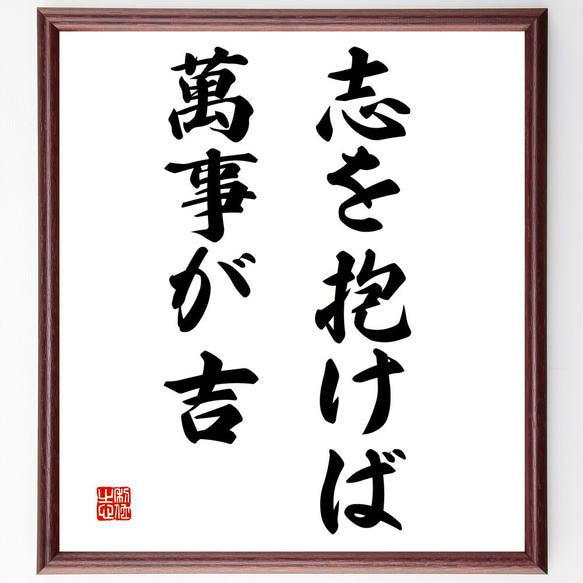 志を抱けば
萬事が吉